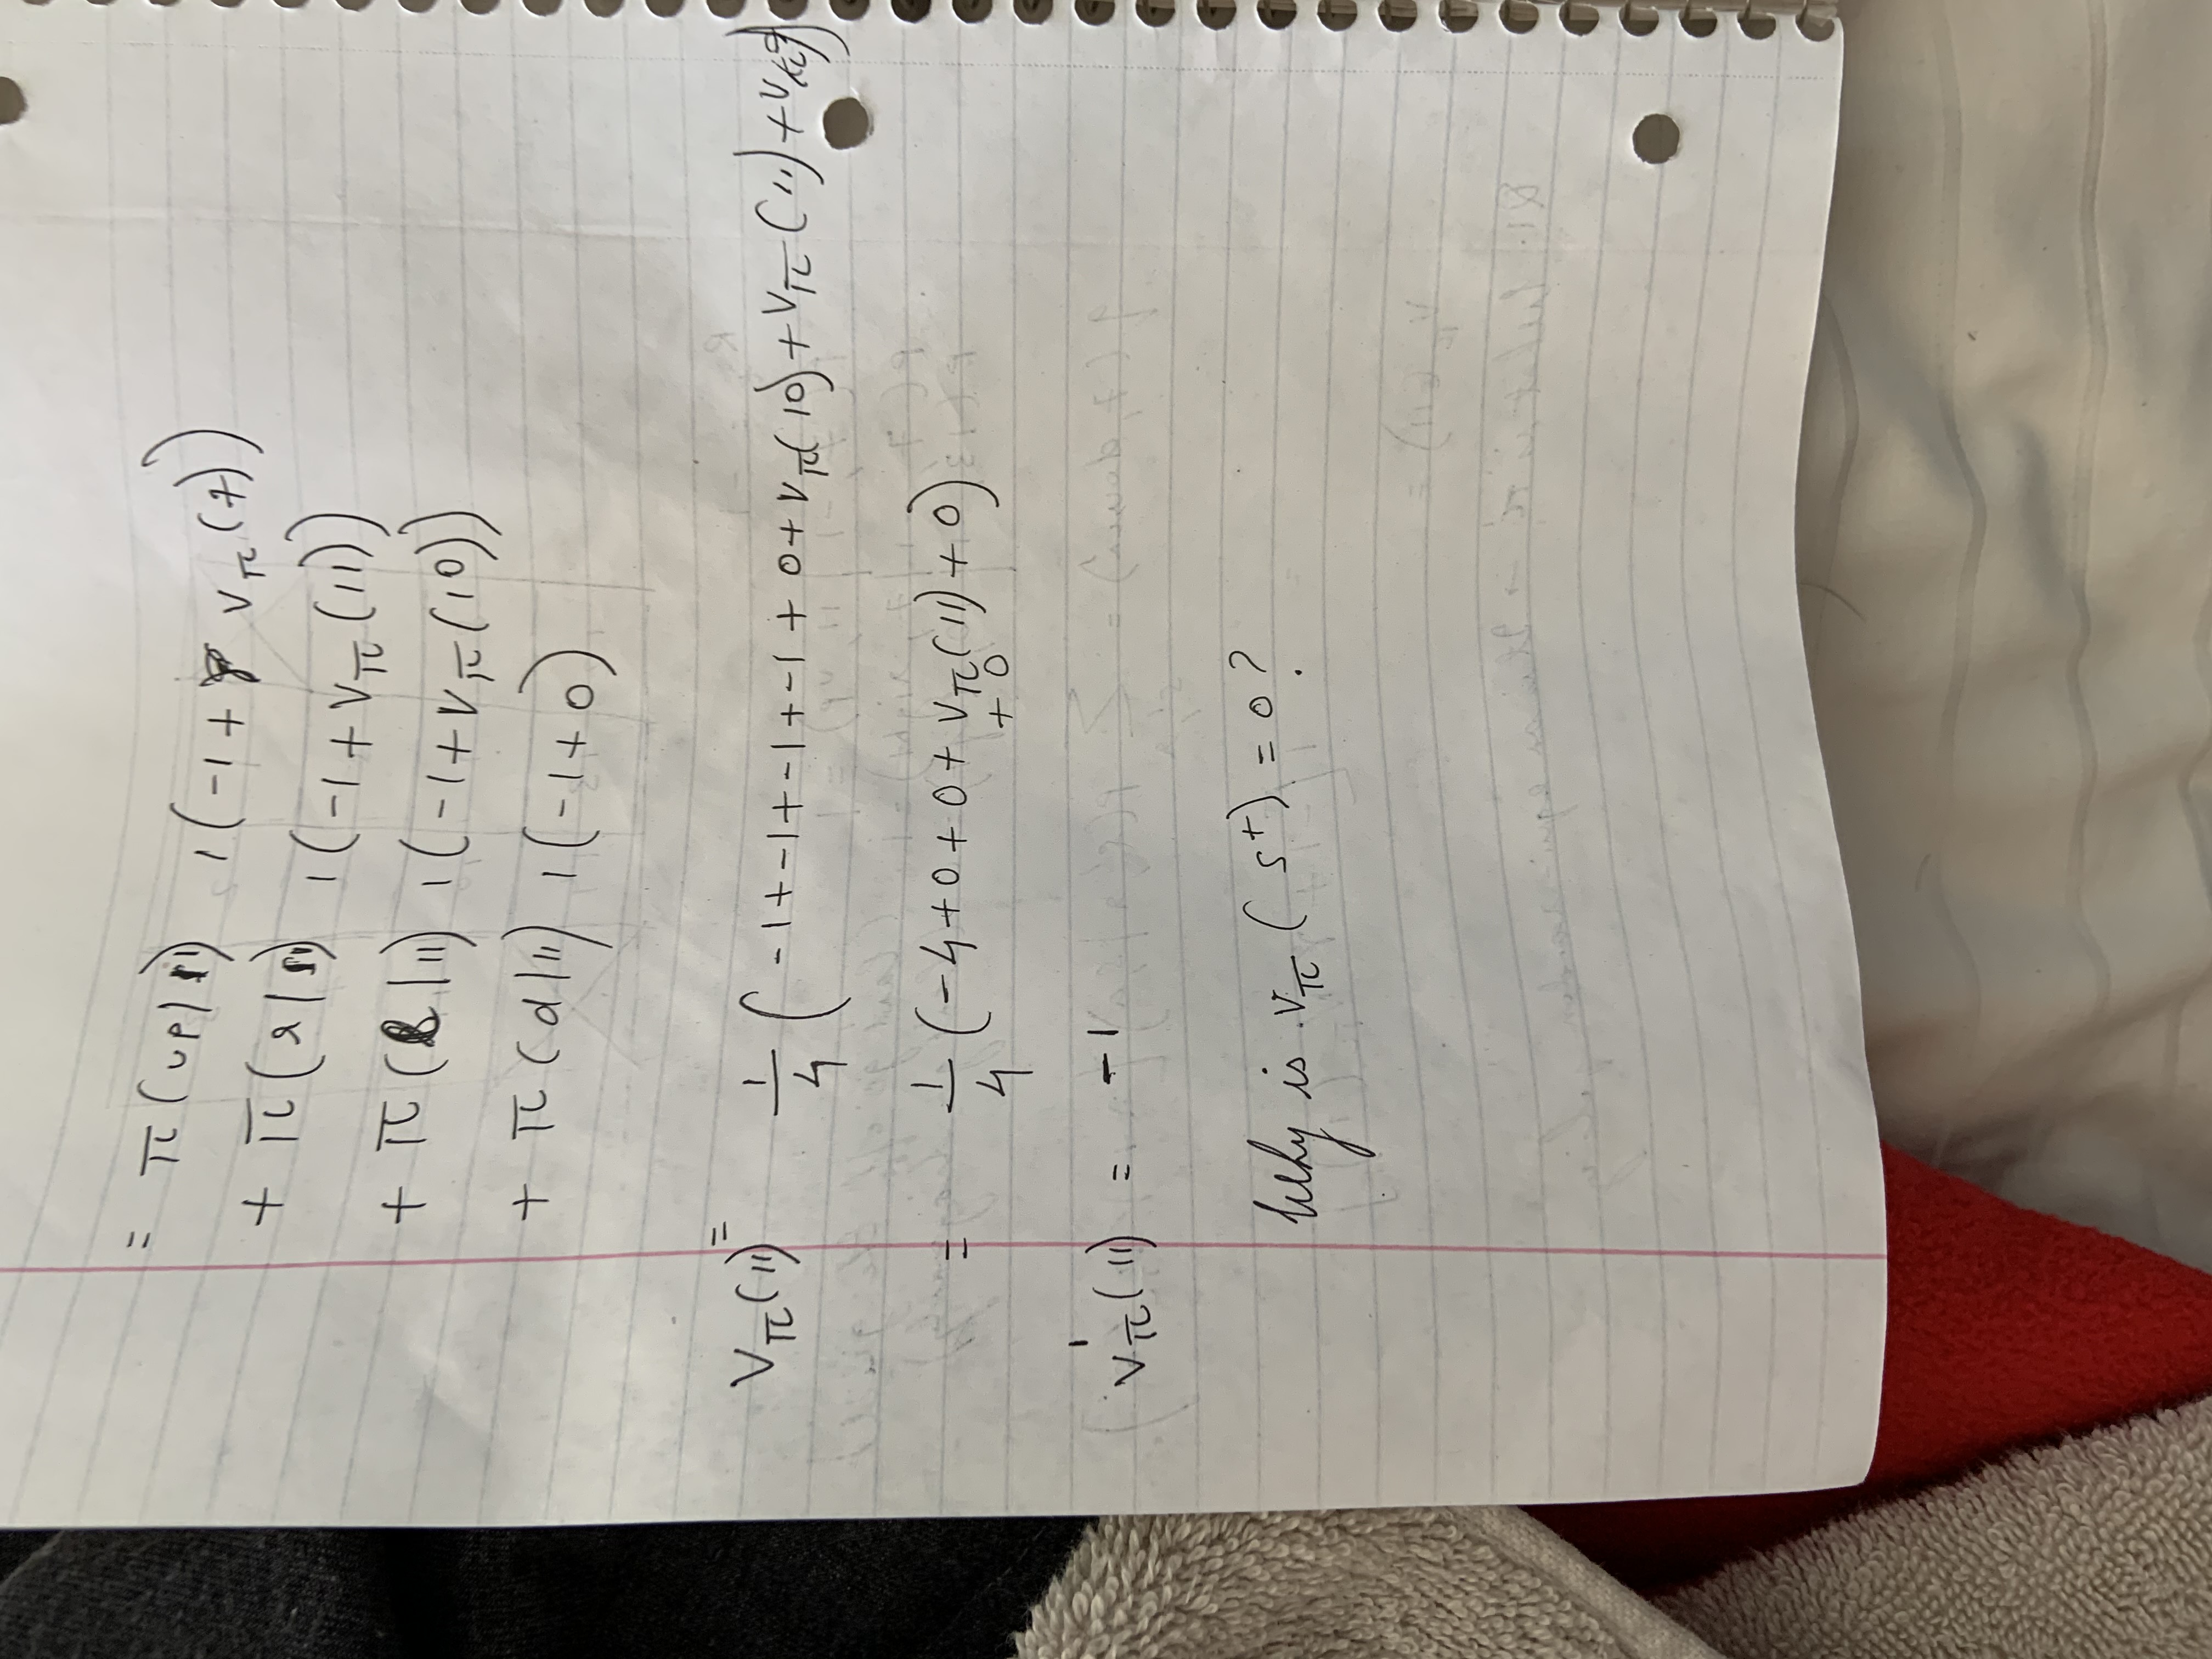 = π(up|11) 1(-1+γ vπ(7))
+ π(r|11) 1(-1+vπ(11))
+ π(l|11) 1(-1+vπ(10))
+ π(d|11) 1(-1+0)
Vπ(11) = 1/4 (-1+-1+-1+-1+0+vπ(10)+vπ(11)+vπ(7))
= 1/4 (-4+0+0+vπ(11)+0)
+0
v¹π(11) = -1
Why is vπ(s+) = 0?